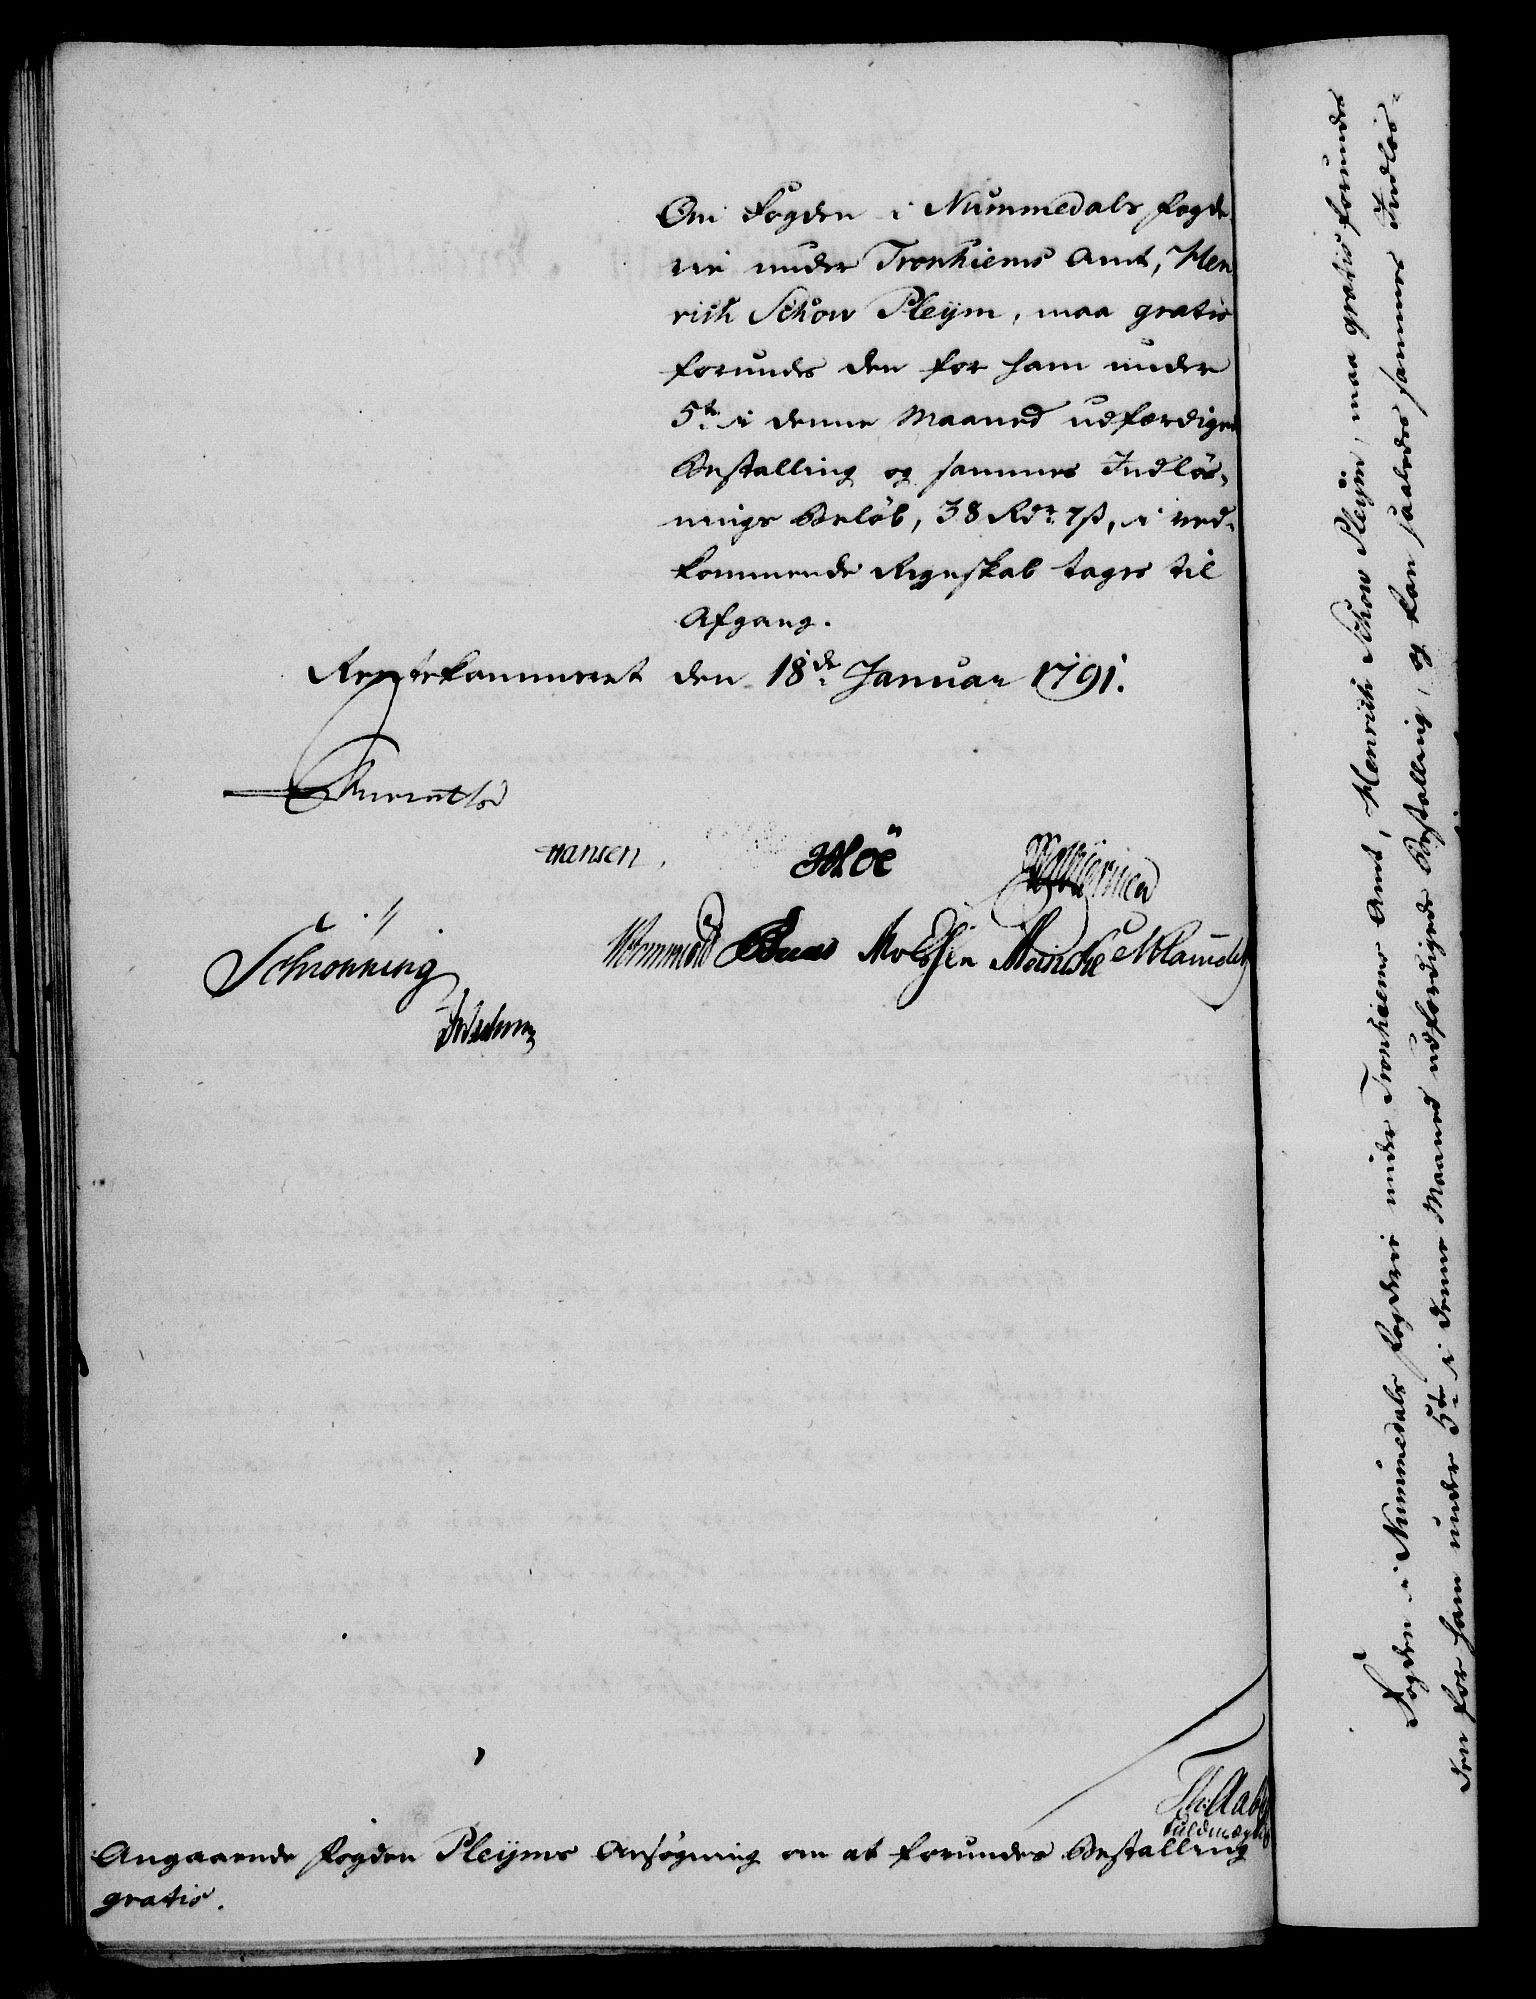 Om Fogden i Nummedals Fogde-
rie under Tronhiems Amt, Hen-
rich Schow Pleÿm, maa gratis
forundes den for ham under
5te i denne Maaned udfærdigede
Bestalling og sammes Indløs-
nings Beløb, 38 Rdr 7 ß, i ved-
kommende Regnskab tages til
Afgang.
Rentekammeret den 18de Januar 1791.
Hansen,
Hoë
Schrönning
Wormskiold
Molssen Meincke
Th: Aabÿ
fuldmægtig
Angaaende Fogden Pleÿms Ansøgning om at forundes Bestalling
gratis.
Fogden i Nummedals Fogderie under Tronhiems Amt, Henrich Schow Pleÿm, maa gratis forundes
den for ham under 5te i denne Maaned udfærdigede Bestalling, og kan saaledes sammes Indløs-